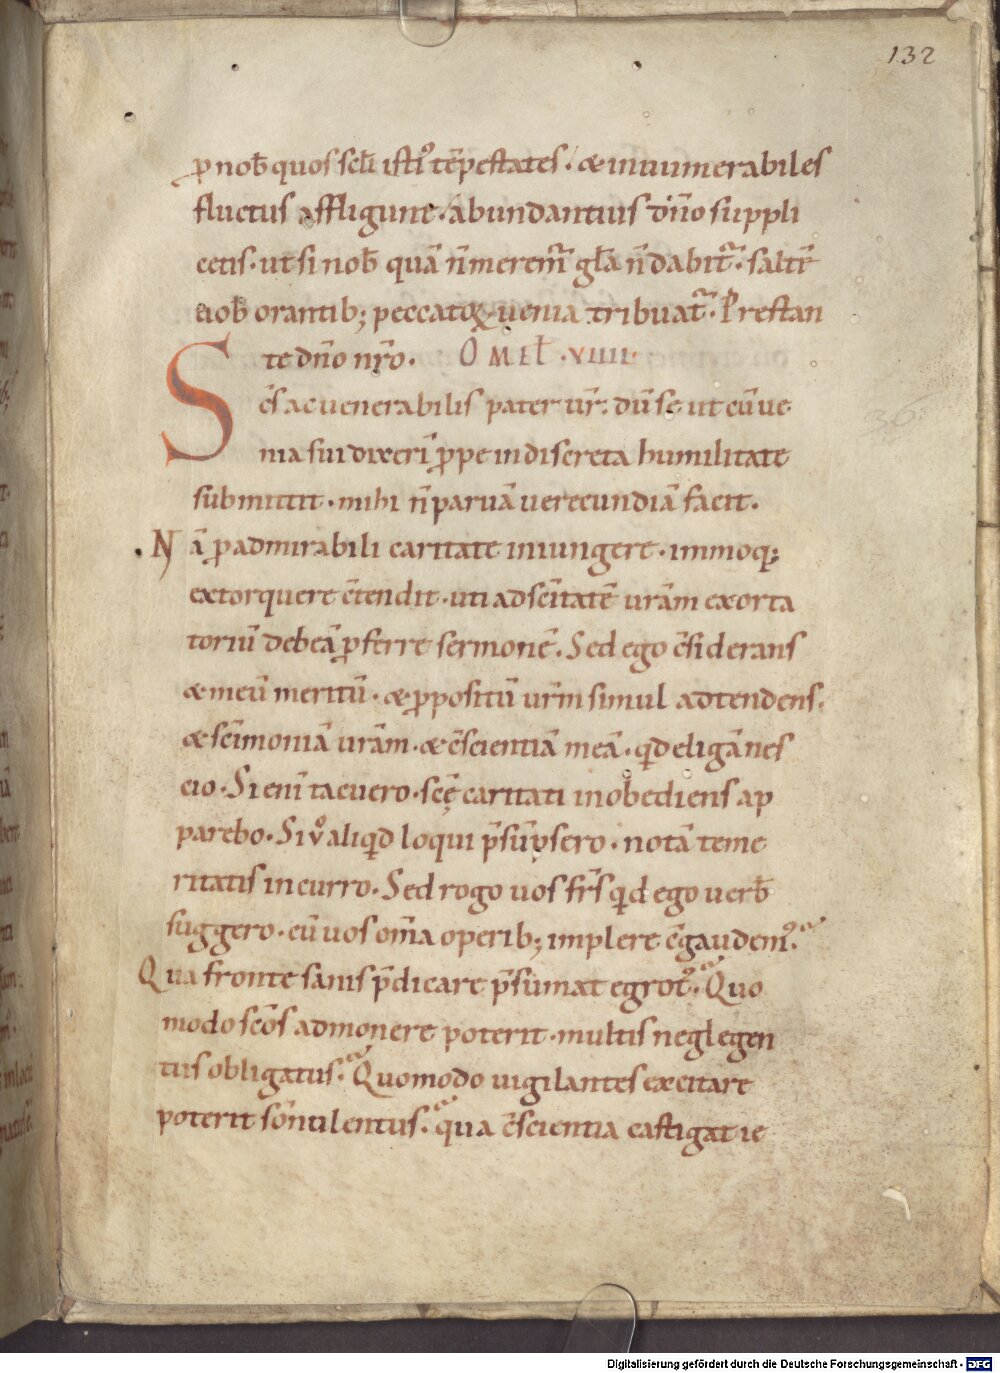 132
ꝓ nob̄ quos sęlī isti᾿ tēpestates · & innumerabiles
fluctus affligunt · abundantius dn̄o suppli
cetis · ut si nob̄ quā n̄ meremr̄ gl̄a n̄ dabit᷑ · saltē
uob̄ orantib; peccatoꝝ uenia tribuat᷑ · Prestan
te dn̄o nr̄o · OMEL̄ · VIIII ·
Sc̄s ac uenerabilis pater ur̄ · dū se ut cū ue
nia sui dixerī ꝓpe indiscreta humilitate
submittit · mihi n̄ paruā uerecundiā facit ·
Nā ꝓ admirabili caritate iniungere · immoq;
extorquere c̄tendit · uti ad sc̄itatē urām exorta
toriū debeā ꝓferre sermonē · Sed ego c̄siderans
& meū meritū · & ꝓpositū urm̄ simul adtendens ·
& sc̄imoniā urām · & c̄scientiā meā · qd eligā nes
cio · Si eni̅ tacuero · sc̄ę caritati inobediens ap
parebo · Si v̊ aliqd loqui p̄sūpsero · notā teme
ritatis incurro · Sed rogo uos fr̄s qd ego uerb̄
suggero · cū uos om̄a operib; implere c̄gaudem᾿ ·
Qua fronte sanis p̄dicare p̄sumat egrot᾿ · Quo
modo sc̄os admonere poterit · multis neglegen
tiis obligatus · Quomodo uigilantes excitare
poterit somn̄ilentus · qua c̄scientia castigat ie
36
Digitalisierung gefördert durch die Deutsche Forschungsgemeinschaft - DFG